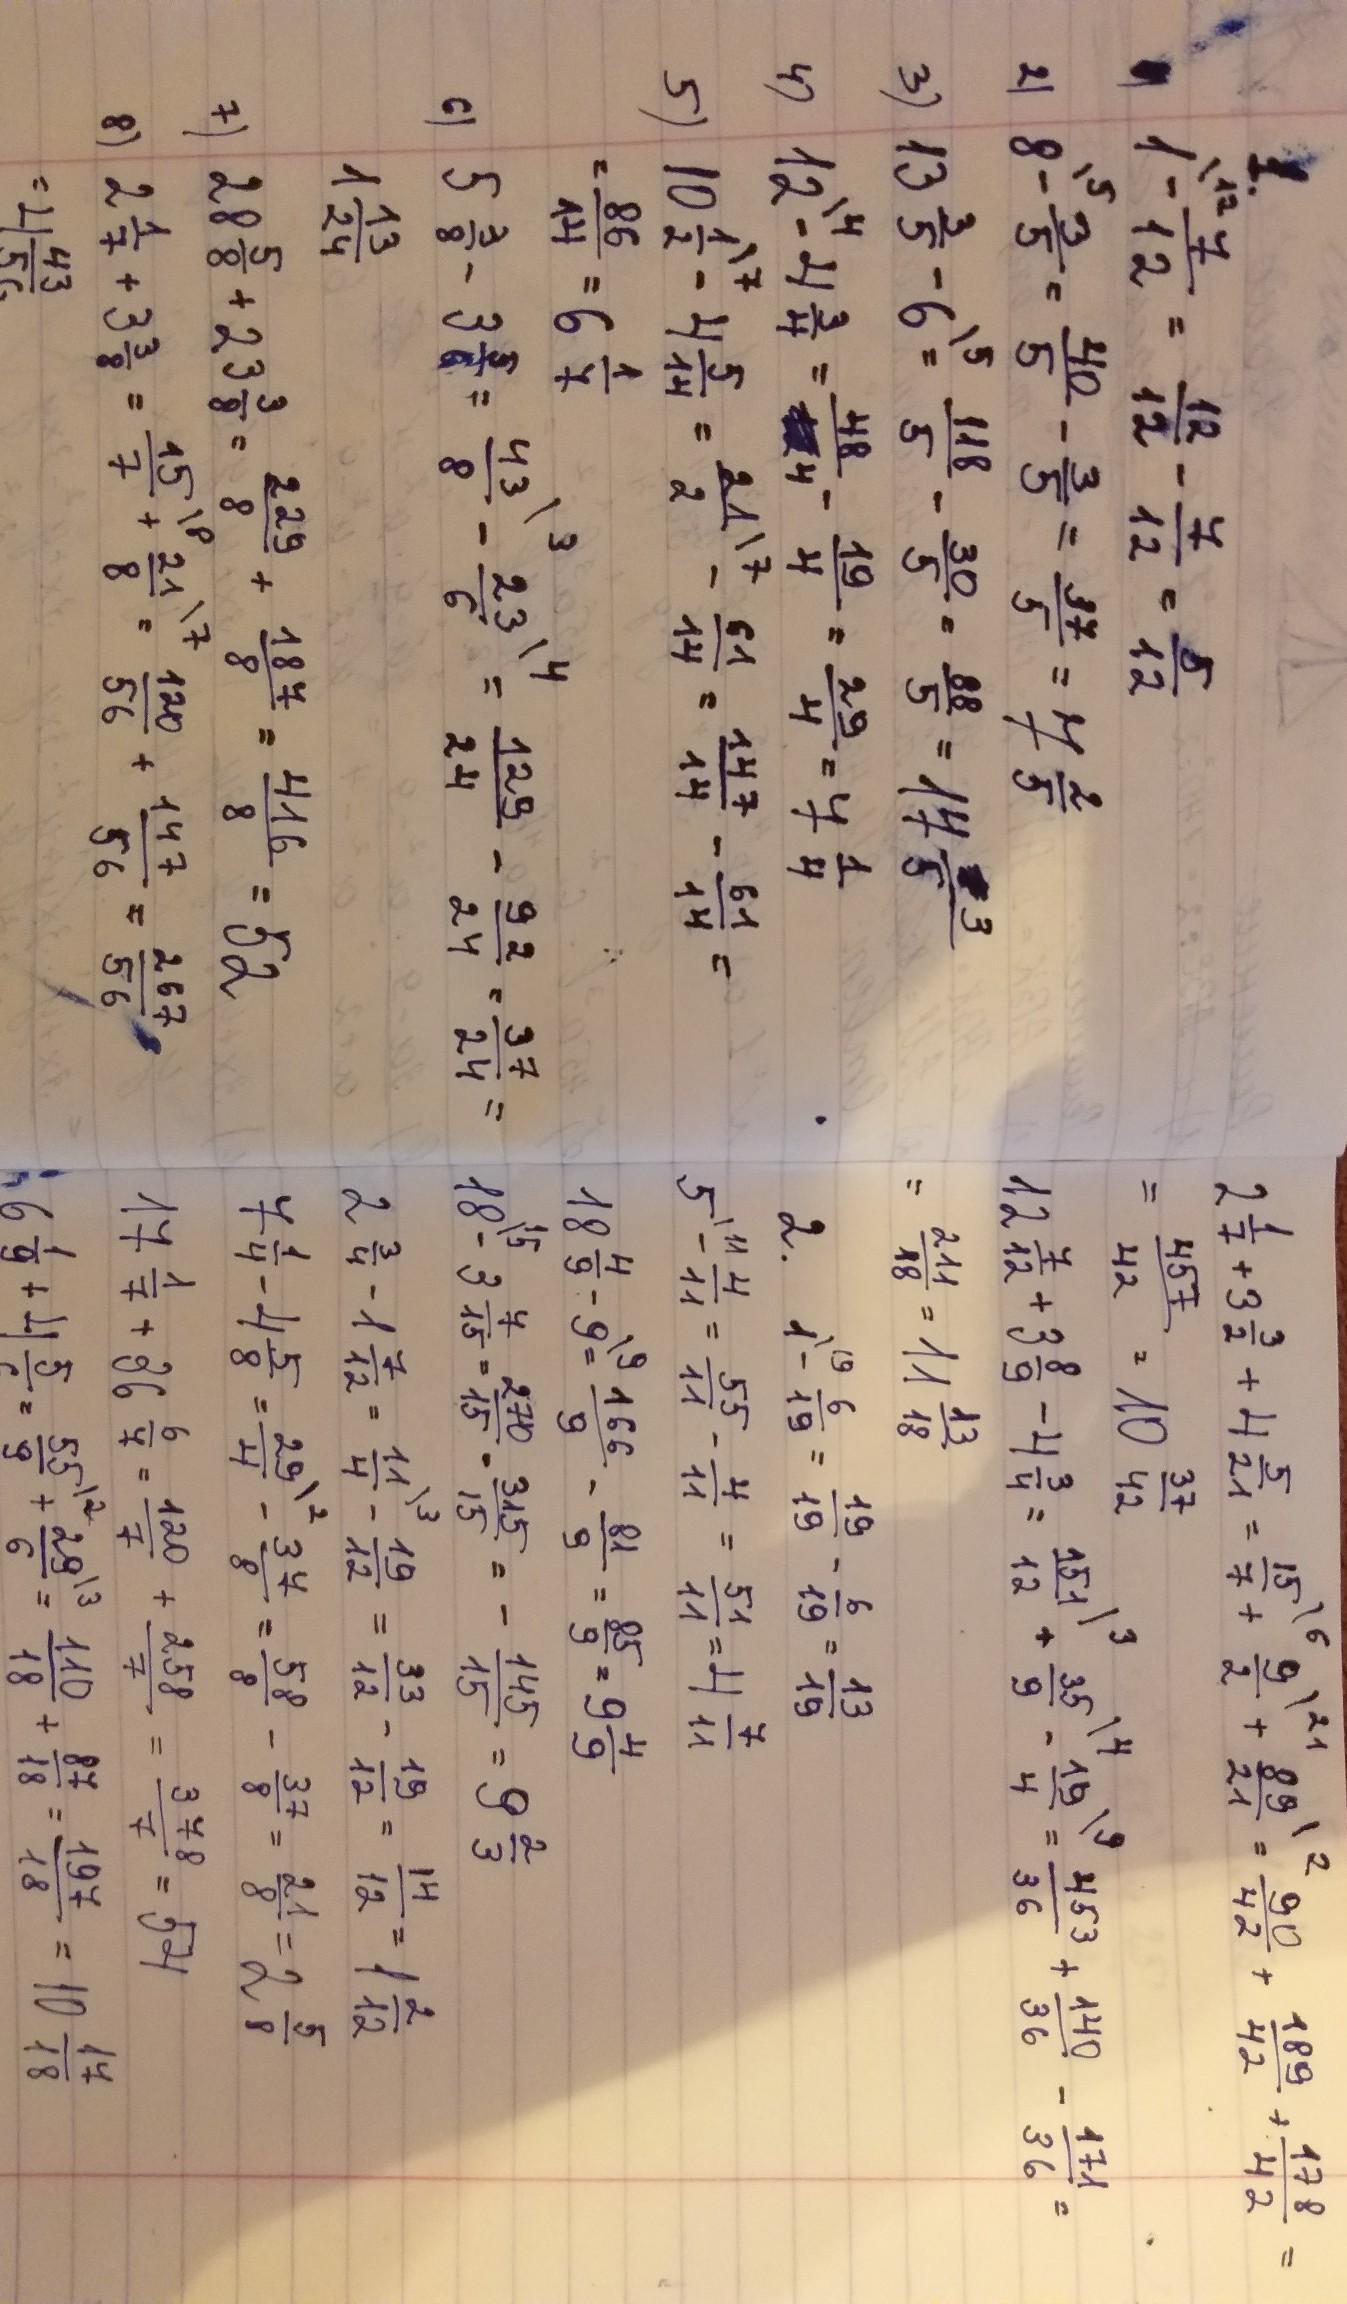 1.
1) 1\12 - 7/12 = 12/12 - 7/12 = 5/12
2) 8\5 - 3/5 = 40/5 - 3/5 = 37/5 = 7 2/5
3) 13 3/5 - 6\5 = 118/5 - 30/5 = 88/5 = 17 3/5
4) 12\4 - 4 3/4 = 48/4 - 19/4 = 29/4 = 7 1/4
5) 10 1/2\7 - 4 5/14 = 21/2\7 - 61/14 = 147/14 - 61/14 =
= 86/14 = 6 1/7
6) 5 3/8 - 3 5/6 = 43/8\3 - 23/6\4 = 129/24 - 92/24 = 37/24 =
1 13/24
7) 28 5/8 + 23 3/8 = 229/8 + 187/8 = 416/8 = 52
8) 2 1/7 + 3 3/8 = 15/7\8 + 21/8\7 = 120/56 + 147/56 = 267/56
= 4 43/56
2 1/7 + 3 3/2 + 4 5/21 = 15/7\6 + 9/2\21 + 89/21\2 = 90/42 + 189/42 + 178/42 =
= 457/42 = 10 37/42
12 7/12 + 3 8/9 - 4 3/4 = 151/12\3 + 35/9\4 - 19/4\9 = 453/36 + 140/36 - 171/36 =
= 211/18 = 11 13/18
2. 1\19 - 6/19 = 19/19 - 6/19 = 13/19
5\11 - 4/11 = 55/11 - 4/11 = 51/11 = 4 7/11
18 4/9 - 9\9 = 166/9 - 81/9 = 85/9 = 9 4/9
18\15 - 3 7/15 = 270/15 - 315/15 = - 145/15 = 9 2/3
2 3/4 - 1 7/12 = 11/4\3 - 19/12 = 33/12 - 19/12 = 14/12 = 1 2/12
7 1/4 - 4 5/8 = 29/4\2 - 37/8 = 58/8 - 37/8 = 21/8 = 2 5/8
17 1/7 + 36 6/7 = 120/7 + 258/7 = 378/7 = 54
6 1/9 + 4 5/6 = 55/9\2 + 29/6\3 = 110/18 + 87/18 = 197/18 = 10 17/18